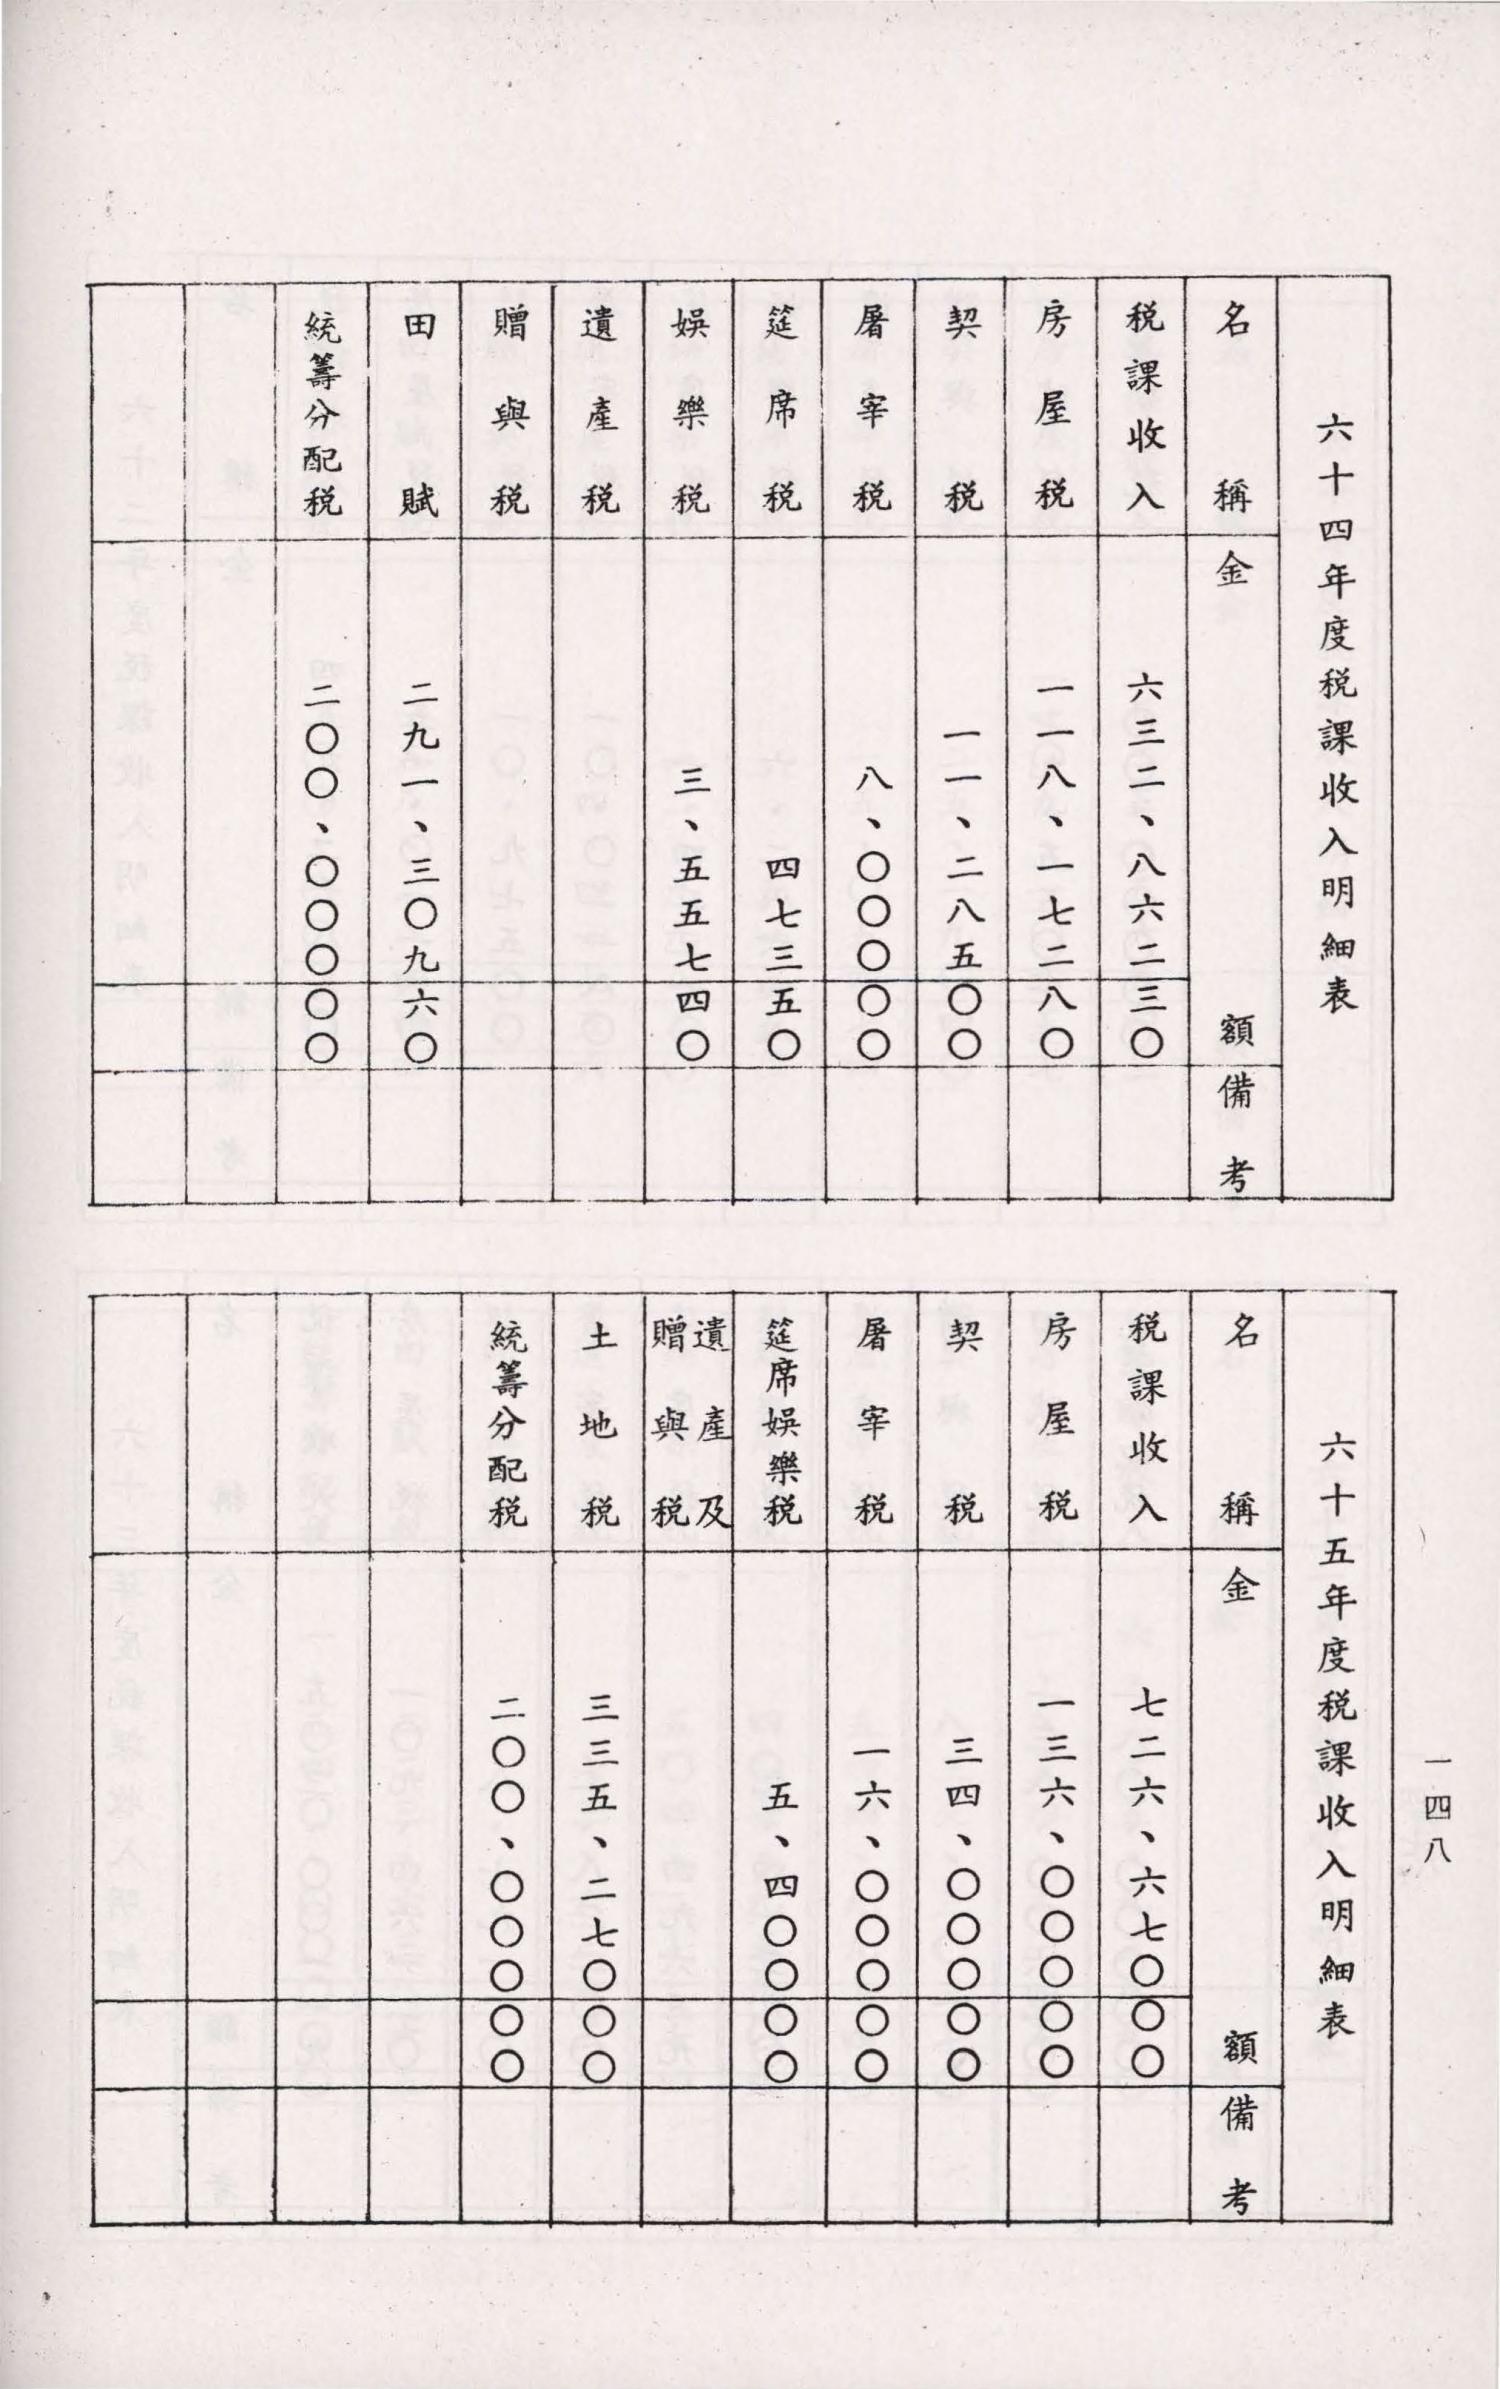 一四八
六十四年度税課收入明細表
名稱 金額 備考
税課收入 六三二、八六二三〇
房屋税 一一八、一七二八〇
契税 一一、二八五〇〇
屠宰税 八、〇〇〇〇〇
筵席税 四七三五〇
娛樂税 三、五五七四〇
遺產税
贈與税
田賦 二九一、三〇九六〇
統籌分配税 二〇〇、〇〇〇〇〇
六十五年度税課收入明細表
名稱 金額 備考
税課收入 七二六、六七〇〇〇
房屋税 一三六、〇〇〇〇〇
契税 三四、〇〇〇〇〇
屠宰税 一六、〇〇〇〇〇
筵席娛樂税 五、四〇〇〇〇
遺產及
贈與税
土地税 三三五、二七〇〇〇
統籌分配税 二〇〇、〇〇〇〇〇